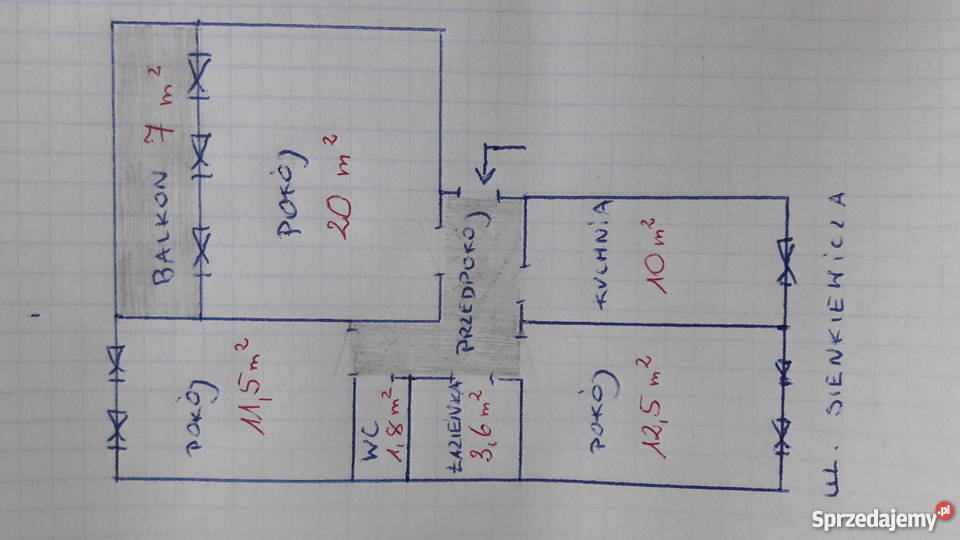 BALKON 7 m²
POKÓJ
20 m²
POKÓJ
11,5 m²
PRZEDPOKÓJ
KUCHNIA
10 m²
WC
1,8 m²
ŁAZIENKA
3,6 m²
POKÓJ
12,5 m²
UL. SIENKIEWICZA
Sprzedajemy.pl